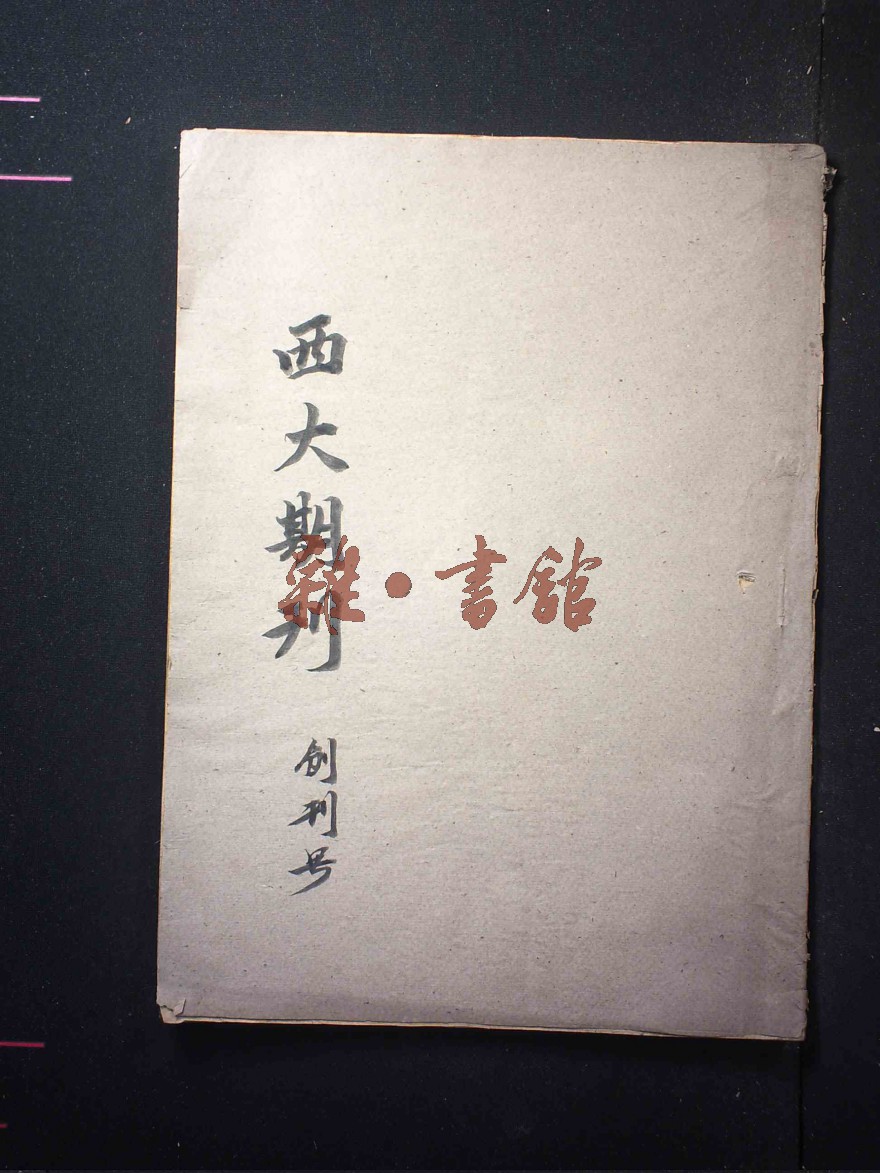 西大期刊
创刊号
雜·書館